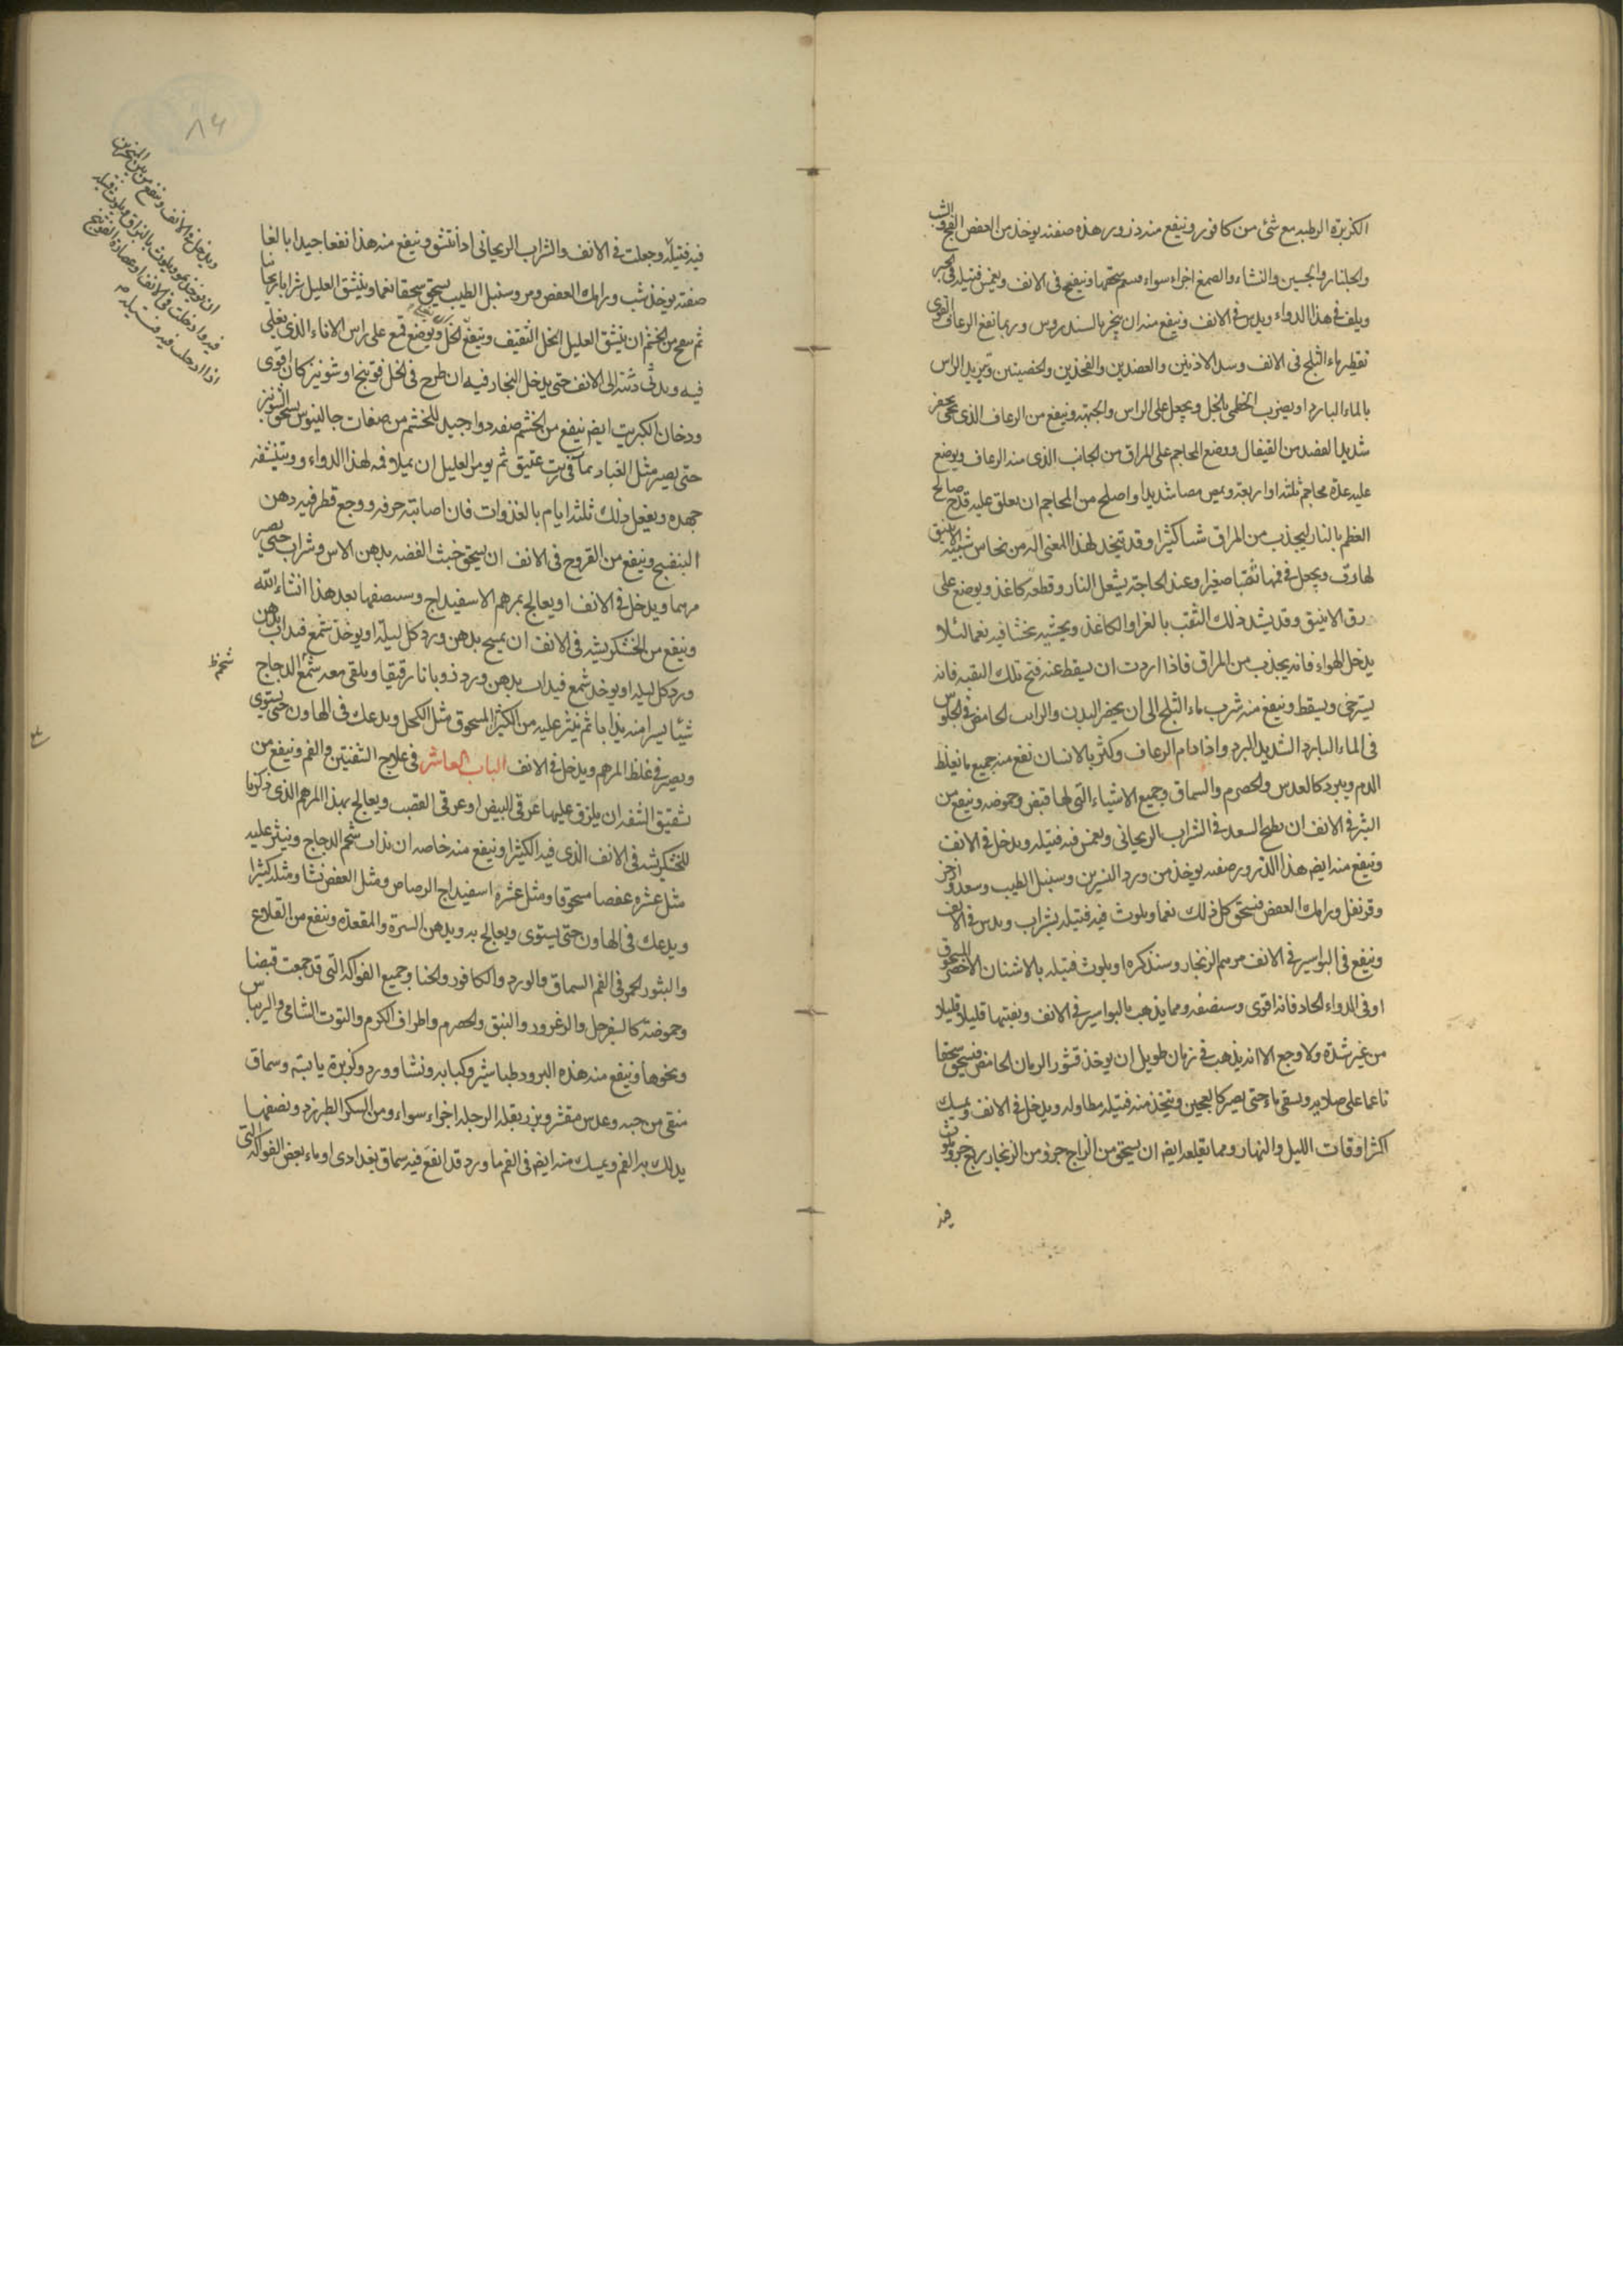 الكزبرة الرطبه مع شئ من كافور وينفع منه ذرور هذه صفته يوخذ من العفص الفج والشب
والجلنار والجبسين والنشاء والصمغ اجزاء سواء فينعم سحقها وينفخ فى الانف ويغمس فتيله فى الحبر
ويلف فى هذا الدواء ويدس فى الانف وينفع منه ان يبخر بالسندروس وربما نفع الرعاف القوى
تقطير ماء الثلج فى الانف وسد الاذنين والعضدين والفخذين والخصيتين وتبريد الراس
بالماء البارد او يضرب الخطمى بالخل ويجعل على الراس والجبهة وينفع من الرعاف الذى يجى بحفز
شديد الفصد من القيفال ووضع المحاجم على المراق من الجانب الذى منه الرعاف ويوضع
عليه عدة محاجم ثلثه او اربعة ويمص مصا شديدا واصلح من المحاجم ان يعلق عليه قدح صالح
العظم بالنار ليجذب من المراق شيأ كثيرا وقد تتخذ لهذا المعنى اله من نحاس شبيه الانبيق
لها دق ويجعل فى فمها ثقبا صغيرا وعند الحاجة يشعل النار وقطعه كاغذ ويوضع على
دق الانبيق وقد يشد ذلك الثقب بالغرا والكاغذ ويحشيه بخشا فيه نعما لئلا
يدخل الهواء فانه يجذب من المراق فاذا اردت ان يسقط عنه فتح تلك النقبه فانه
يسترخى ويسقط وينفع منه شرب ماء الثلج الى ان يخضر البدن والرايب الحامض والجلوس
فى الماء البارد الشديد البرد واذا دام الرعاف وكثر بالانسان نفع منه جميع ما يغلظ
الدم ويبرد كالعدس والحصرم والسماق وجميع الاشياء التى لها قبض وحموضه وينفع من
البثر فى الانف ان يطبخ السعد فى الشراب الريحانى ويغمس فيه فتيله ويدخل فى الانف
وينفع منه ايضا هذا الذرور صفته يوخذ من ورد النسرين وسنبل الطيب وسعد واذخر
وقرنفل ورامك العفص فيسحق كل ذلك نعما ويلوث فيه فتيله بشراب ويدس فى الانف
وينفع فى البواسير فى الانف مرهم الزنجار وسنذكره او يلوث فتيله بالاشنان الاخضر المسحوق
او فى الدواء الحاد فانه اقوى وسنصفه ومما يذهب بالبواسير فى الانف ويفتيها قليلا قليلا
من غير شدة ولا وجع الا انه يذهب فى زمان طويل ان يوخذ قشور الرمان الحامض فيسحق سحقا
ناعما على صلايه ويسقى ماء حتى يصير كالعجين ويتخذ منه فتيله مطاوله ويدخل فى الانف ويمسك
اكثر اوقات الليل والنهار ومما يقلعه ايضا ان يسحق من الزاج جزؤ من الزنجار ربع جزؤ ويلوث
فيه
٨٤
فيه فتيلة وجعلت فى الانف والشراب الريحانى اذا تنشق وينفع منه هذا نفعا جيدا بالغا
صفته يوخذ شب ورامك العفص ومر وسنبل الطيب يسحق سحقا نعما ويتنشق العليل شرابا ريحانيا
ثم ينفخ من الخشم ان ينشق العليل الخل الثقيف وينفع الخل ويوضع قمع على راس الاناء الذى يغلى
فيه ويدنى دنته الى الانف حتى يدخل البخار فيه ان طرح فى الخل فوتنج او شونيز كان اقوى
ودخان الكبريت ايضا ينفع من الخشم صفه دواء جيد للخشم من صفات جالينوس يسحق الشونيز
حتى يصير مثل الغبار بماء فى زيت عتيق ثم يومر العليل ان يملا فمه لهذا الدواء ويتنشقه
جهده ويفعل ذلك ثلثه ايام بالغذوات فان اصابته حرقه ووجع قطر فيه دهن
البنفسج وينفع من القروح فى الانف ان يسحق خبث الفضه بدهن الاس وشراب حتى يصير
مرهما ويدخل فى الانف او يعالج بمرهم الاسفيداج وسنصفها بعد هذا انشاء الله
وينفع من الخشكريشه فى الانف ان يمسح بدهن ورد كل ليلة او يوخذ شمع فيذاب بدهن
ورد كل ليله او يوخذ شمع فيذاب بدهن ورد ذوبانا رقيقا ويلقى معه شمع الدجاج
شيئا يسيرا منه يذابا ثم ينثر عليه من الكثيرا المسحوق مثل الكحل ويدعك فى الهاون حتى يستوى
ويصير فى غلظ المرهم ويدخل فى الانف الباب العاشر فى علاج الشفتين والفم وينفع من
تشقيق الشفه ان يلزق عليها غرقئ البيض او عرقى القصب ويعالج بهذا المرهم الذى ذكرنا
للخشكريشه فى الانف الذى فيه الكثيرا وينفع منه خاصه ان يذاب شحم الدجاج وينثر عليه
مثل عشره عفصا مسحوقا ومثل عشره اسفيداج الرصاص ومثل العفص نشا ومثله كثيرا
ويدعك فى الهاون حتى يستوى ويعالج به ويدهن السرة والمقعدة وينفع من القلاع
والبثور الحمر فى الفم السماق والورد والكافور والحنا وجميع الفواكه التى قد جمعت قبضا
وحموضة كالسفرجل والزعرور والنبق والحصرم واطراف الكرم والتوت الشامى والريباس
ونحوها وينفع منه هذه البرود طباشير وكبابه ونشا وورد وكزبرة يابسة وسماق
منقى من حبه وعدس مقشر وبزر بقلة الرجله اجزاء سواء ومن السكر الطبرزد ونصفها
يدلك به الفم ويمسك منه ايضا فى الفم ماورد قد انقع فيه سماق بغدادى او ماء بعض الفواكه التى
ويدخل فى الانف وينفع من نتن المنخرين
شحم ظ